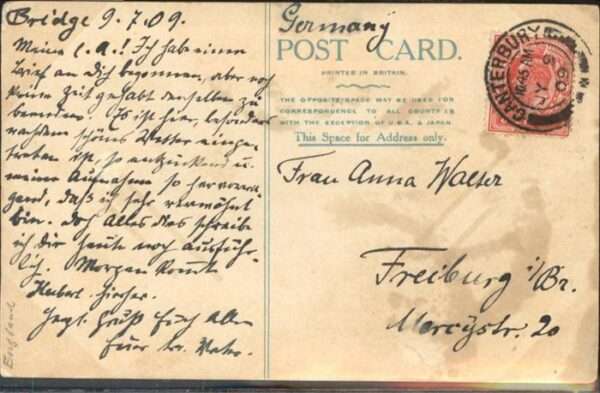 Bridge 9.7.09.
Meine l. A.! Ich habe einen
Brief an Dich begonnen, aber noch
keine Zeit gehabt denselben zu
beenden. Es ist hier, besonders
nachdem schönes Wetter einge-
treten ist, so entzückend u.
meine Aufnahme so hervorra-
gend, daß ich sehr verwöhnt
bin. Doch Alles das schreibe
ich Dir heute noch ausführ-
lich. Morgen kommt
Herbert hierher.
Herzl. Gruß Euch Allen
Euer tr. Vater.
England
Germany
POST CARD.
PRINTED IN BRITAIN.
THE OPPOSITE SPACE MAY BE USED FOR
CORRESPONDENCE TO ALL COUNTRIES
WITH THE EXCEPTION OF U.S.A. & JAPAN.
This Space for Address only.
CANTERBURY
10.45 AM
JY 9
09
Frau Anna Walter
Freiburg i/Br.
Mercystr. 20